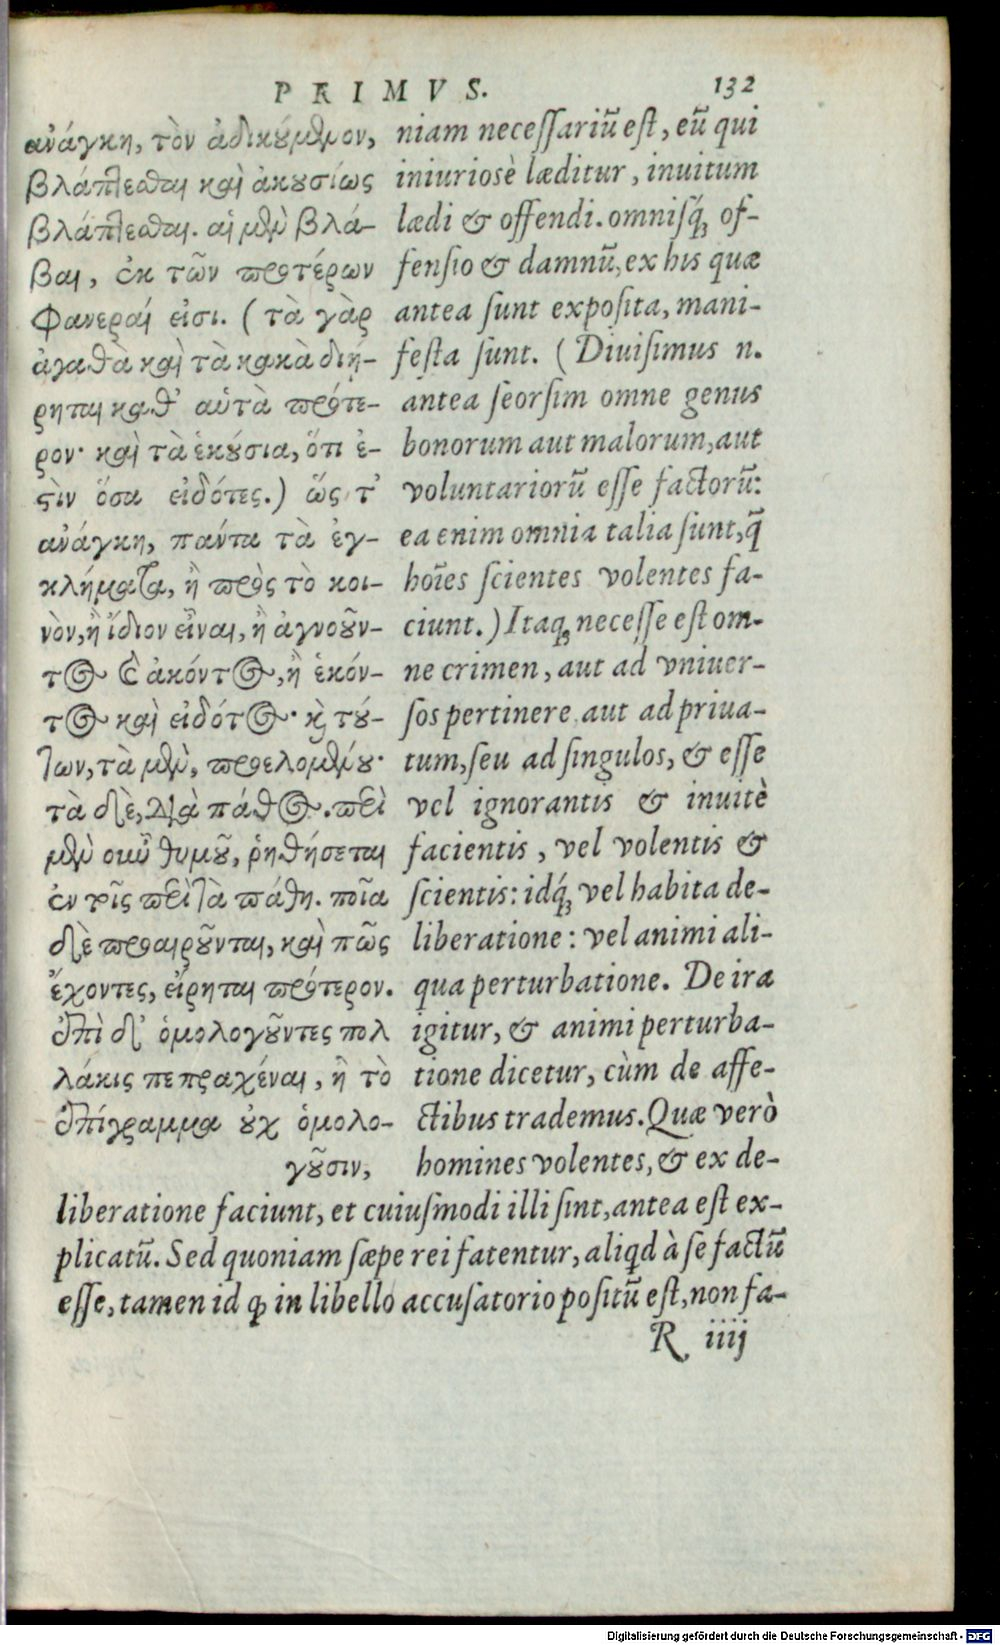 PRIMVS. 132
ἀνάγκη, τὸν ἀδικούμενον,
βλάπτεσθαι καὶ ἀκουσίως
βλάπτεσθαι. αἱ μὲν βλά-
βαι, ἐκ τῶν προτέρων
φανεραί εἰσι. (τὰ γὰρ
ἀγαθὰ καὶ τὰ κακὰ διῄ-
ρηται καθ' αὑτὰ πρότε-
ρον· καὶ τὰ ἑκούσια, ὅτι ἐ-
στὶν ὅσα εἰδότες.) ὥς τ'
ἀνάγκη, πάντα τὰ ἐγ-
κλήματα, ἢ πρὸς τὸ κοι-
νὸν, ἢ ἴδιον εἶναι, ἢ ἀγνοοῦν-
τος καὶ ἀκόντος, ἢ ἑκόν-
τος καὶ εἰδότος· καὶ τού-
των, τὰ μὲν, προελομένου·
τὰ δὲ, διὰ πάθος. περὶ
μὲν οὖν θυμοῦ, ῥηθήσεται
ἐν τοῖς περὶ τὰ πάθη. ποῖα
δὲ προαιροῦνται, καὶ πῶς
ἔχοντες, εἴρηται πρότερον.
ἐπεὶ δ' ὁμολογοῦντες πολ
λάκις πεπραχέναι, ἢ τὸ
ἐπίγραμμα οὐχ ὁμολο-
γοῦσιν,
niam necessariū est, eū qui
iniuriosè læditur, inuitum
lædi & offendi. omnisq́; of-
fensio & damnū, ex his quæ
antea sunt exposita, mani-
festa sunt. (Diuisimus n.
antea seorsim omne genus
bonorum aut malorum, aut
voluntariorū esse factorū:
ea enim omnia talia sunt, q̄
hoīes scientes volentes fa-
ciunt.) Itaq; necesse est om-
ne crimen, aut ad vniuer-
sos pertinere aut ad priua-
tum, seu ad singulos, & esse
vel ignorantis & inuitè
facientis, vel volentis &
scientis: idq́; vel habita de-
liberatione: vel animi ali-
qua perturbatione. De ira
igitur, & animi perturba-
tione dicetur, cùm de affe-
ctibus trademus. Quæ verò
homines volentes, & ex de-
liberatione faciunt, et cuiusmodi illi sint, antea est ex-
plicatū. Sed quoniam sæpe rei fatentur, aliqd à se factū
esse, tamen id ꝙ in libello accusatorio positū est, non fa-
R iiij
Digitalisierung gefördert durch die Deutsche Forschungsgemeinschaft - DFG